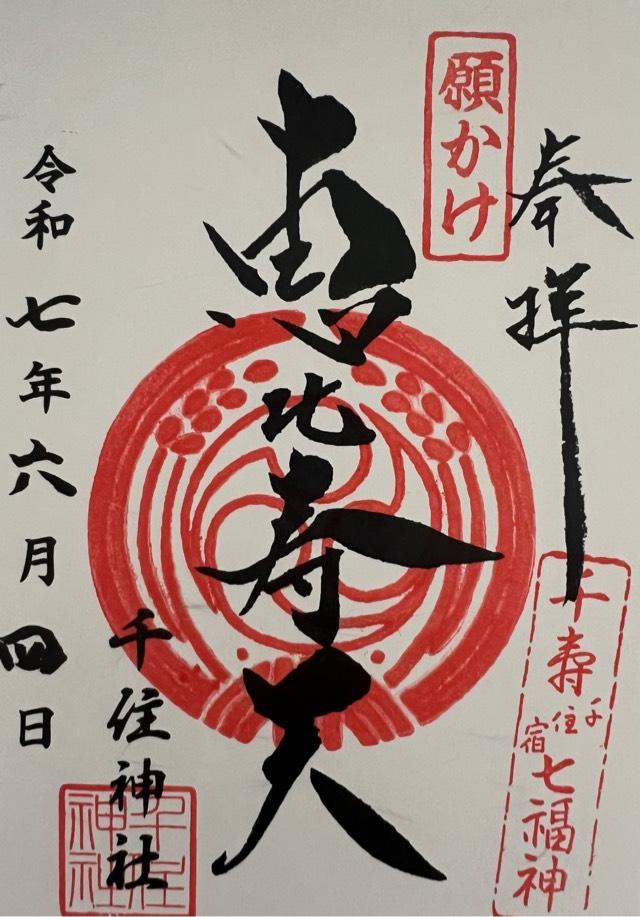 奉拝
願かけ
千寿
千住宿
七福神
恵比寿天
千住神社
千住神社
令和七年六月四日